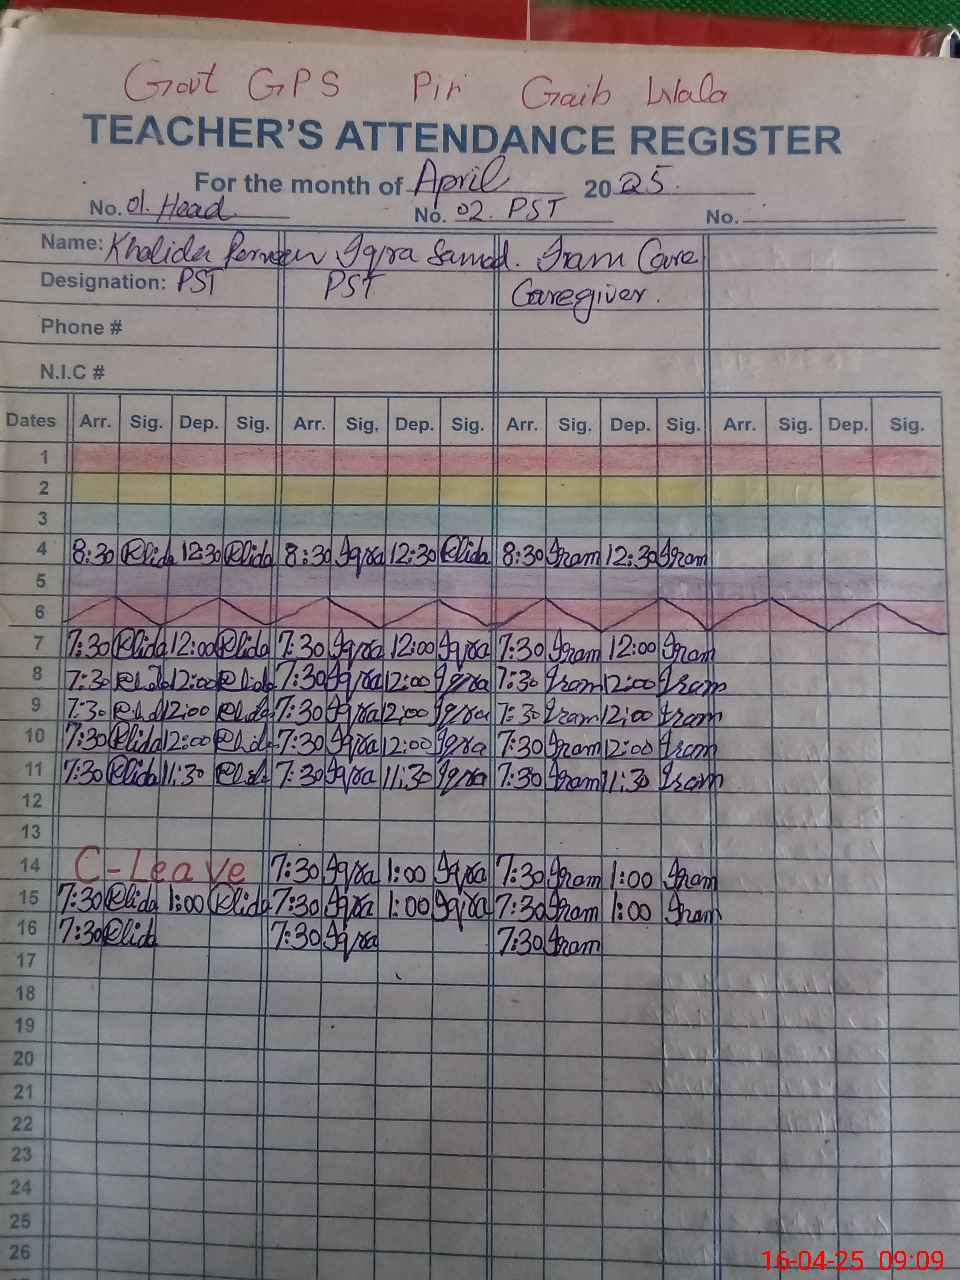 Govt GPS Pir Gaib Wala
TEACHER'S ATTENDANCE REGISTER
For the month of April 2025.
No. 01. Head No. 02. PST No.
Name: Khalida Parveen Iqra Samad. Iram Care
Designation: PST PST Caregiver.
Phone #
N.I.C #
Dates Arr. Sig. Dep. Sig. Arr. Sig. Dep. Sig. Arr. Sig. Dep. Sig. Arr. Sig. Dep. Sig.
1
2
3
4 8:30 Klida 12:30 Klida 8:30 Iqra 12:30 Klida 8:30 Iram 12:30 Iram
5
6
7 7:30 Klida 12:00 Klida 7:30 Iqra 12:00 Iqra 7:30 Iram 12:00 Iram
8 7:30 12:00 7:30 Iqra 12:00 Iqra 7:30 Iram 12:00 Iram
9 7:30 12:00 7:30 Iqra 12:00 Iqra 7:30 Iram 12:00 Iram
10 7:30 Klida 12:00 7:30 Iqra 12:00 Iqra 7:30 Iram 12:00 Iram
11 7:30 Klida 11:30 7:30 Iqra 11:30 Iqra 7:30 Iram 11:30 Iram
12
13
14 C-Leave 7:30 Iqra 1:00 Iqra 7:30 Iram 1:00 Iram
15 7:30 Klida 1:00 Klida 7:30 Iqra 1:00 Iqra 7:30 Iram 1:00 Iram
16 7:30 Klida 7:30 Iqra 7:30 Iram
17
18
19
20
21
22
23
24
25
26
16-04-25 09:09